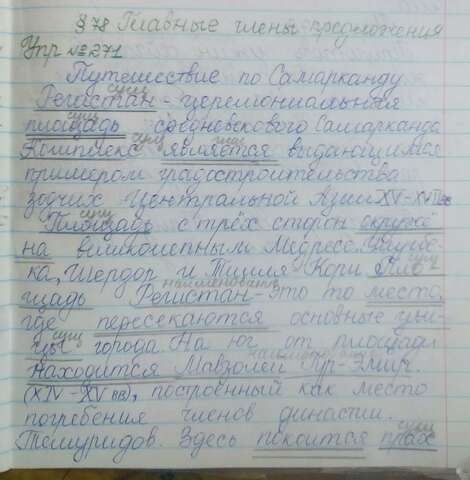 § 78 Главные члены предложения
Упр №271
Путешествие по Самарканду
сущ
Регистан - церемониальная
сущ
площадь средневекового Самарканда
сущ
Комплекс является выдающимся
примером градостроительства
зодчих Центральной Азии XV-XVII
сущ
Площадь с трёх сторон окруже
на великолепным Медресе. Улугбе-
ка, Шердор и Тилля Кори Пло
сущ
щадь Регистан-это то место
где пересекаются основные ули-
сущ
цы города. На юг от площади
находится Мавзолей Гур-Эмир.
(XIV-XVвв), построенный как место
погребения членов династии.
сущ
Темуридов. Здесь покоится прах